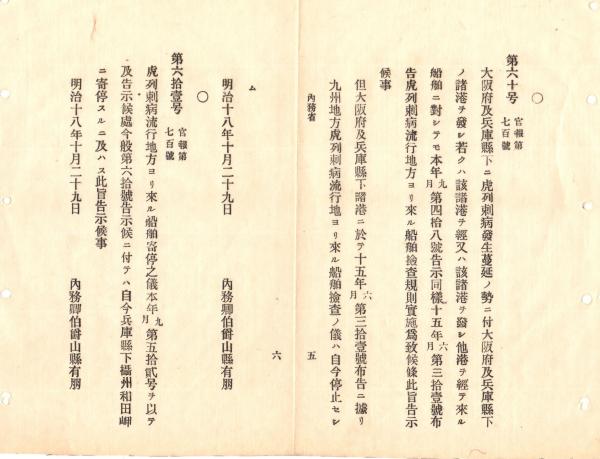 ○
第六十号 官報第七百號
大阪府及兵庫縣下ニ虎列刺病發生蔓延ノ勢ニ付大阪府及兵庫縣下
ノ諸港ヲ發シ若クハ該諸港ヲ經又ハ該諸港ヲ發シ他港ヲ經テ來ル
船舶ニ對シテモ本年九月第四拾八號告示同樣十五年六月第三拾壹號布
告虎列刺病流行地方ヨリ來ル船舶撿查規則實施爲致候條此旨告示
候事
但大阪府及兵庫縣下諸港ニ於テ十五年六月第三拾壹號布告ニ據リ
九州地方虎列刺病流行地ヨリ來ル船舶撿查ノ儀ハ自今停止セシ
內務省
五
六
ム
明治十八年十月二十九日 內務卿伯爵山縣有朋
○
第六拾壹号 官報第七百號
虎列刺病流行地方ヨリ來ル船舶寄停之儀本年九月第五拾貳号ヲ以テ
及告示候處今般第六拾號告示候ニ付テハ自今兵庫縣下攝州和田岬
ニ寄停スルニ及ハス此旨告示候事
明治十八年十月二十九日 內務卿伯爵山縣有朋